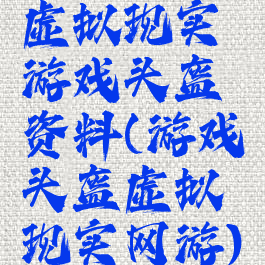 虚拟现实
游戏头盔
资料(游戏
头盔虚拟
现实网游)